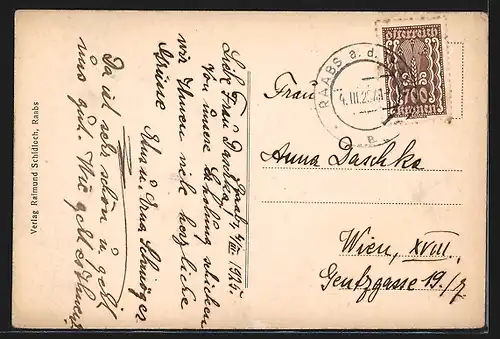 Raabs, 4/III. 1925.
Liebe Frau Daschka
Von unserer Erholung schicken
wir Ihnen recht herzliche
Grüsse
Edna u. Irma
Da ist sehr schön u. geht
uns gut. Wie geht es Ihnen?
Verlag Raimund Schildloch, Raabs
Österreich
700
Kronen
RAABS a. d.
4.III.25
Frau
Anna Daschka
Wien, XVIII.
Gentzgasse 19./7